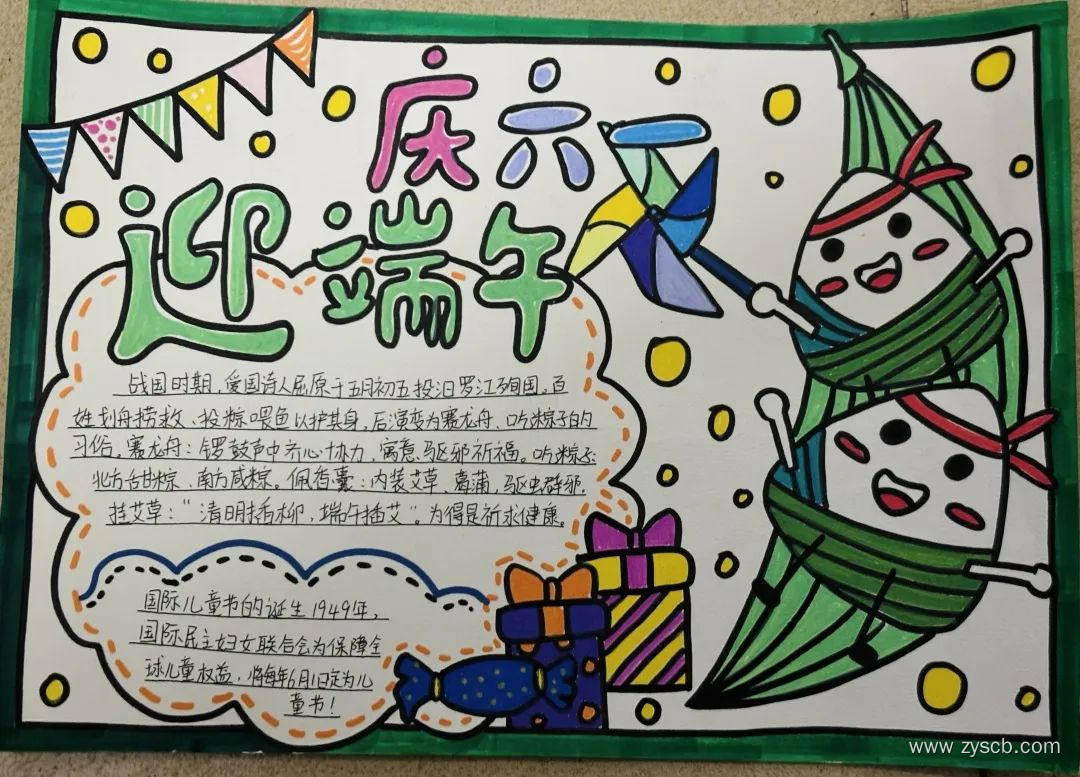 庆六一
迎端午
战国时期，爱国诗人屈原于五月初五投汨罗江殉国。百
姓划舟捞救、投粽喂鱼以护其身，后演变为赛龙舟、吃粽子的
习俗。赛龙舟：锣鼓声中齐心协力，寓意驱邪祈福。吃粽子：
北方甜粽、南方咸粽。佩香囊：内装艾草、菖蒲，驱虫辟邪。
挂艾草：“清明插柳，端午插艾”。为得是祈求健康。
国际儿童节的诞生1949年，
国际民主妇女联合会为保障全
球儿童权益，将每年6月1日定为儿
童节！
www.zyscb.com